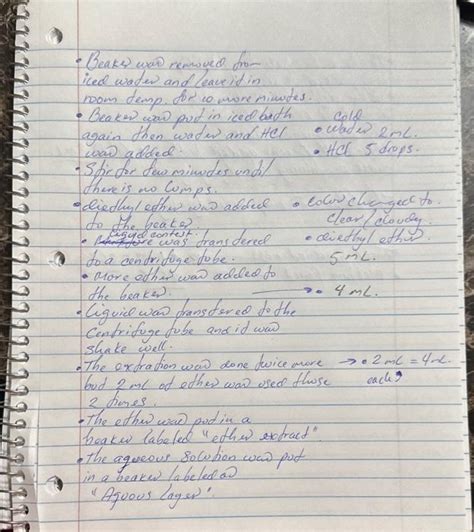 • Beaker was removed from
iced water and leave it in
room temp. for 10 more minutes.
• Beaker was put in iced bath
again then water and HCl
was added.
cold
• water 2 mL.
• HCl 5 drops.
• Stir for few minutes until
there is no lumps.
• diethyl ether was added
to the beaker.
• color changed to
clear/cloudy.
• liquid content was transfered
to a centrifuge tube.
• diethyl ether.
5 mL.
• More ether was added to
the beaker. → • 4 mL.
• Liquid was transfered to the
centrifuge tube and it was
shake well.
• The extration was done twice more → • 2 mL = 4 mL
but 2 ml of ether was used those
each
2 times.
• The ether was put in a
beaker labeled "ether extract".
• The aqueous solution was put
in a beaker labeled as
"Aquous Layer".